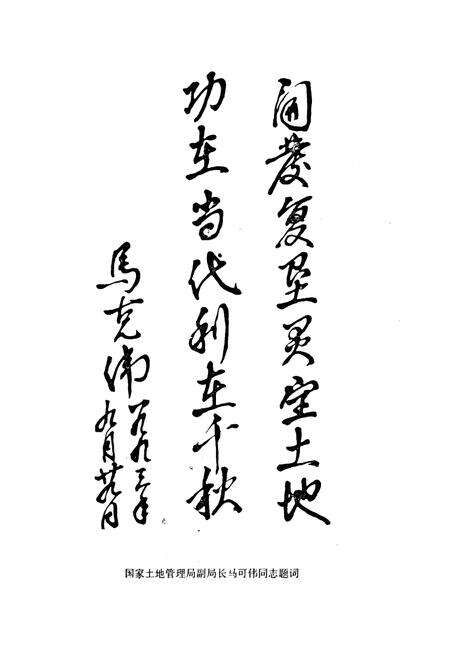 開發复垦灵宝土地
功在当代利在千秋
馬克偉
一九九三年
九月廿九日
国家土地管理局副局长马可伟同志题词